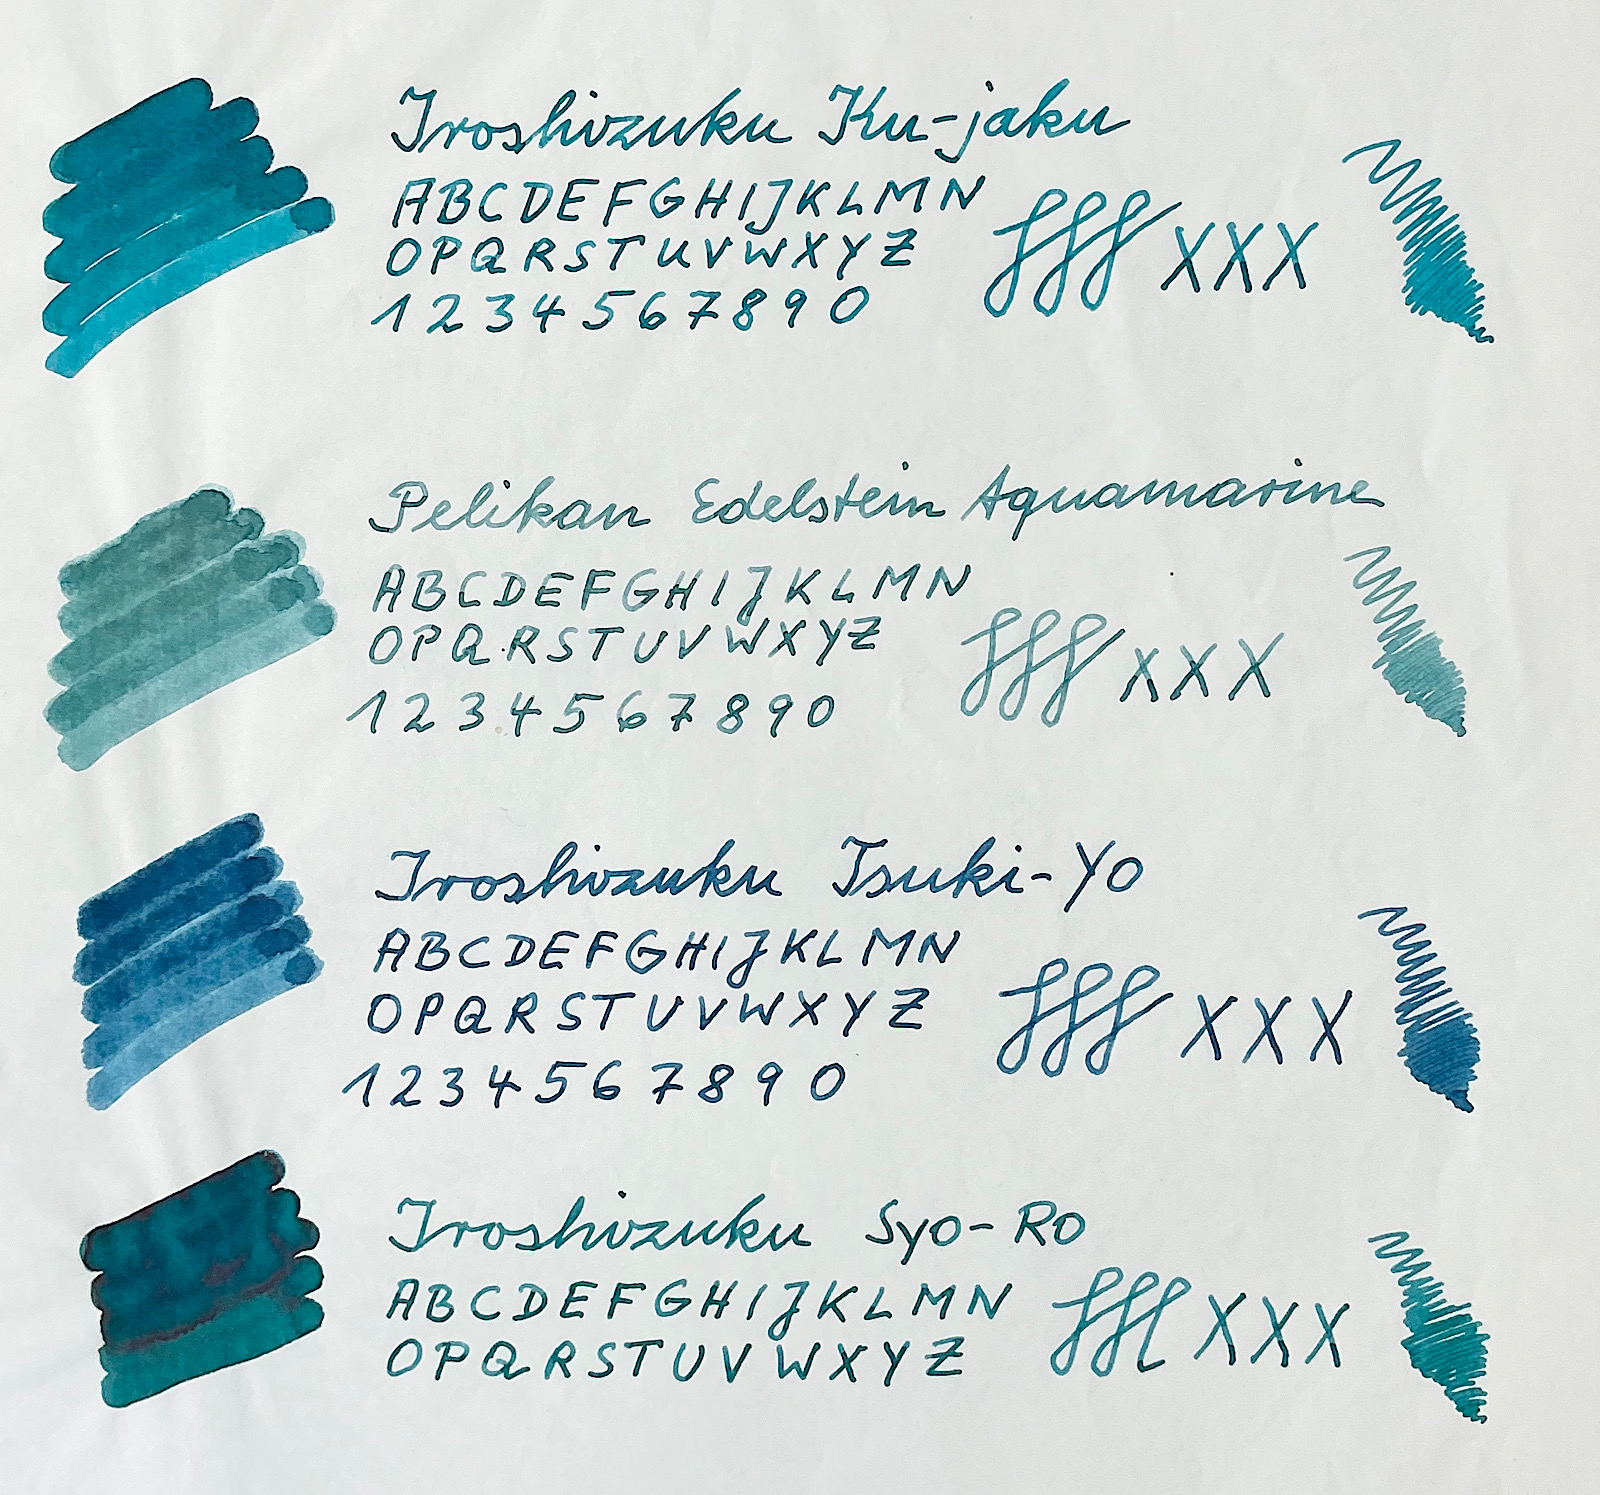 Iroshizuku Ku-jaku
ABCDEFGHIJKLMN
OPQRSTUVWXYZ
1234567890
fff XXX
Pelikan Edelstein Aquamarine
ABCDEFGHIJKLMN
OPQRSTUVWXYZ
1234567890
fff XXX
Iroshizuku Tsuki-Yo
ABCDEFGHIJKLMN
OPQRSTUVWXYZ
1234567890
fff XXX
Iroshizuku Syo-Ro
ABCDEFGHIJKLMN
OPQRSTUVWXYZ
fff XXX